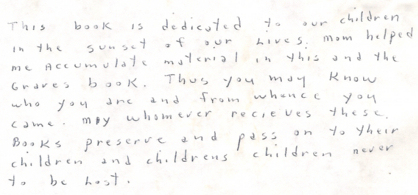 This book is dedicated to our children
in the sunset of our Lives. Mom helped
me Accumulate material in this and the
Graves book. Thus you may know
who you are and from whence you
came. may whomever recieves these.
Books preserve and pass on to their
children and childrens children never
to be Lost.